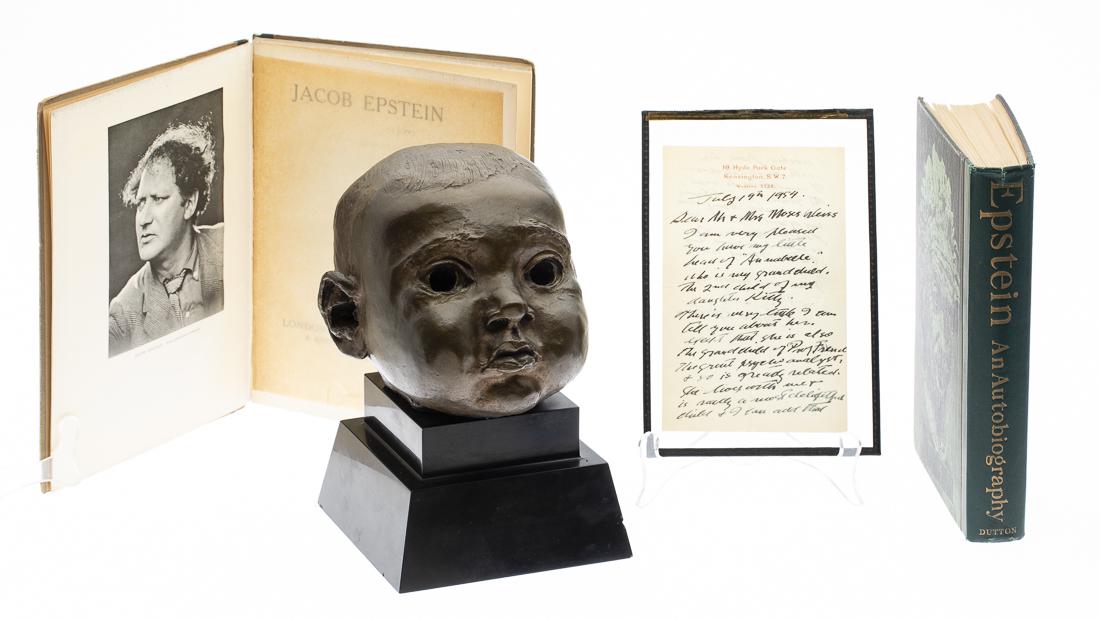 JACOB EPSTEIN
LONDON
18 Hyde Park Gate
Kensington, S.W.7.
July 19th 1954.
Dear Mr & Mrs Moses Weiss
I am very pleased
you have my little
head of "Annabelle."
who is my grandchild.
the 2nd child of my
daughter Kitty.
There is very little I can
tell you about her.
except that she is also
the grandchild of Prof Freud
the great psycho analyst,
& so is greatly related.
She lives with me &
is really a most delightful
child & I can add that
Epstein An Autobiography
DUTTON